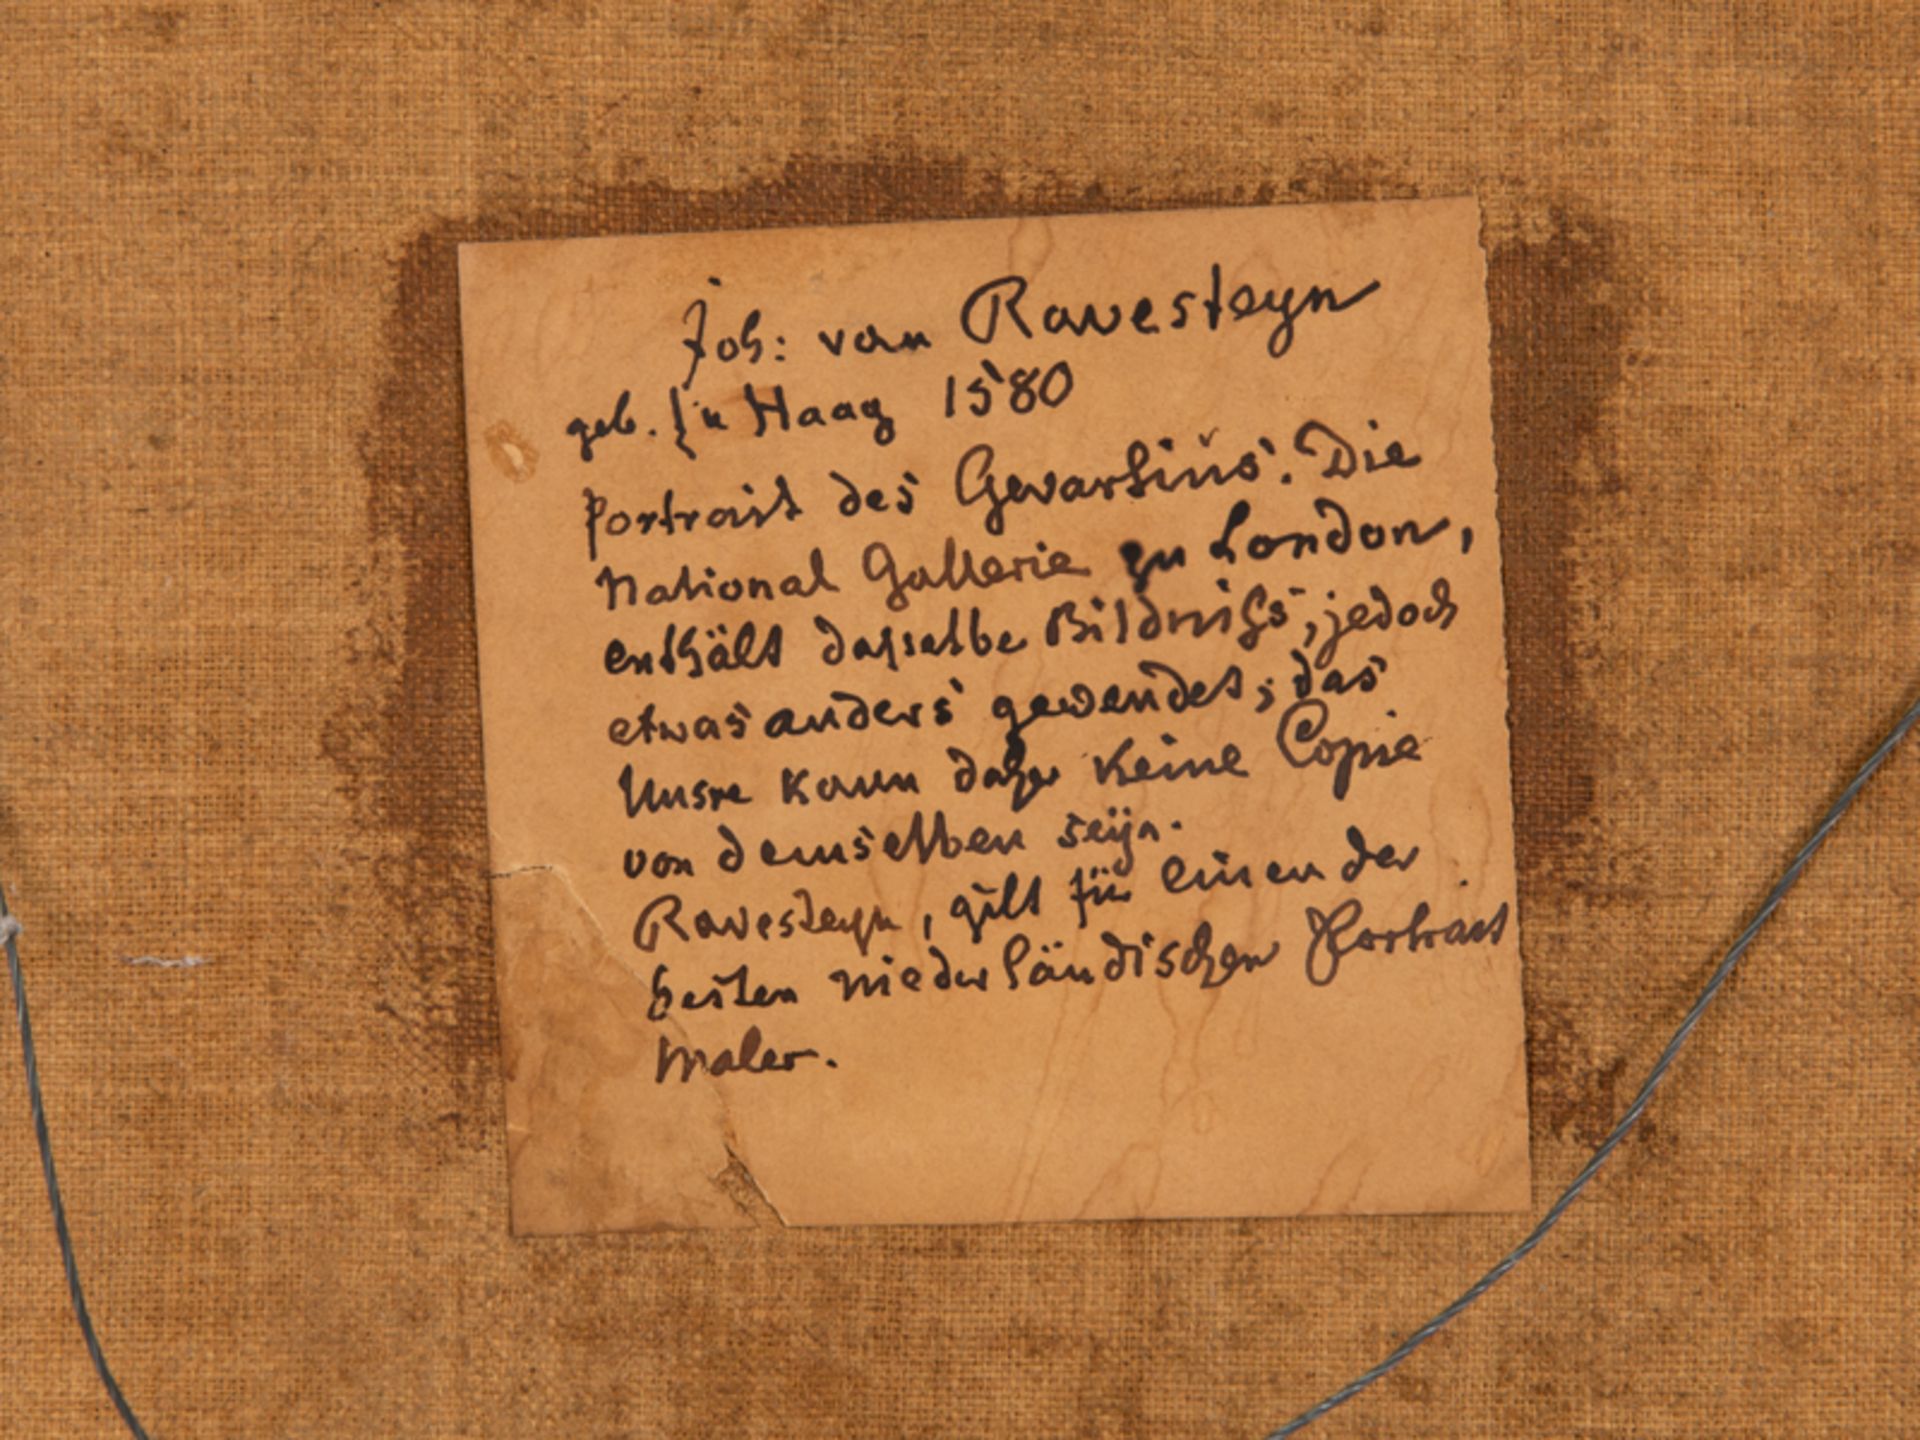 Joh: van Ravesteyn
geb. zu Haag 1580
Portrait des Gevartius. Die
National Gallerie zu London,
enthält dasselbe Bildniſs, jedoch
etwas anders gewendet; das
Unsre kann daher keine Copie
von demselben seÿn.
Ravesteyn, gilt für einen der
besten niederländischen Portrait
Maler.